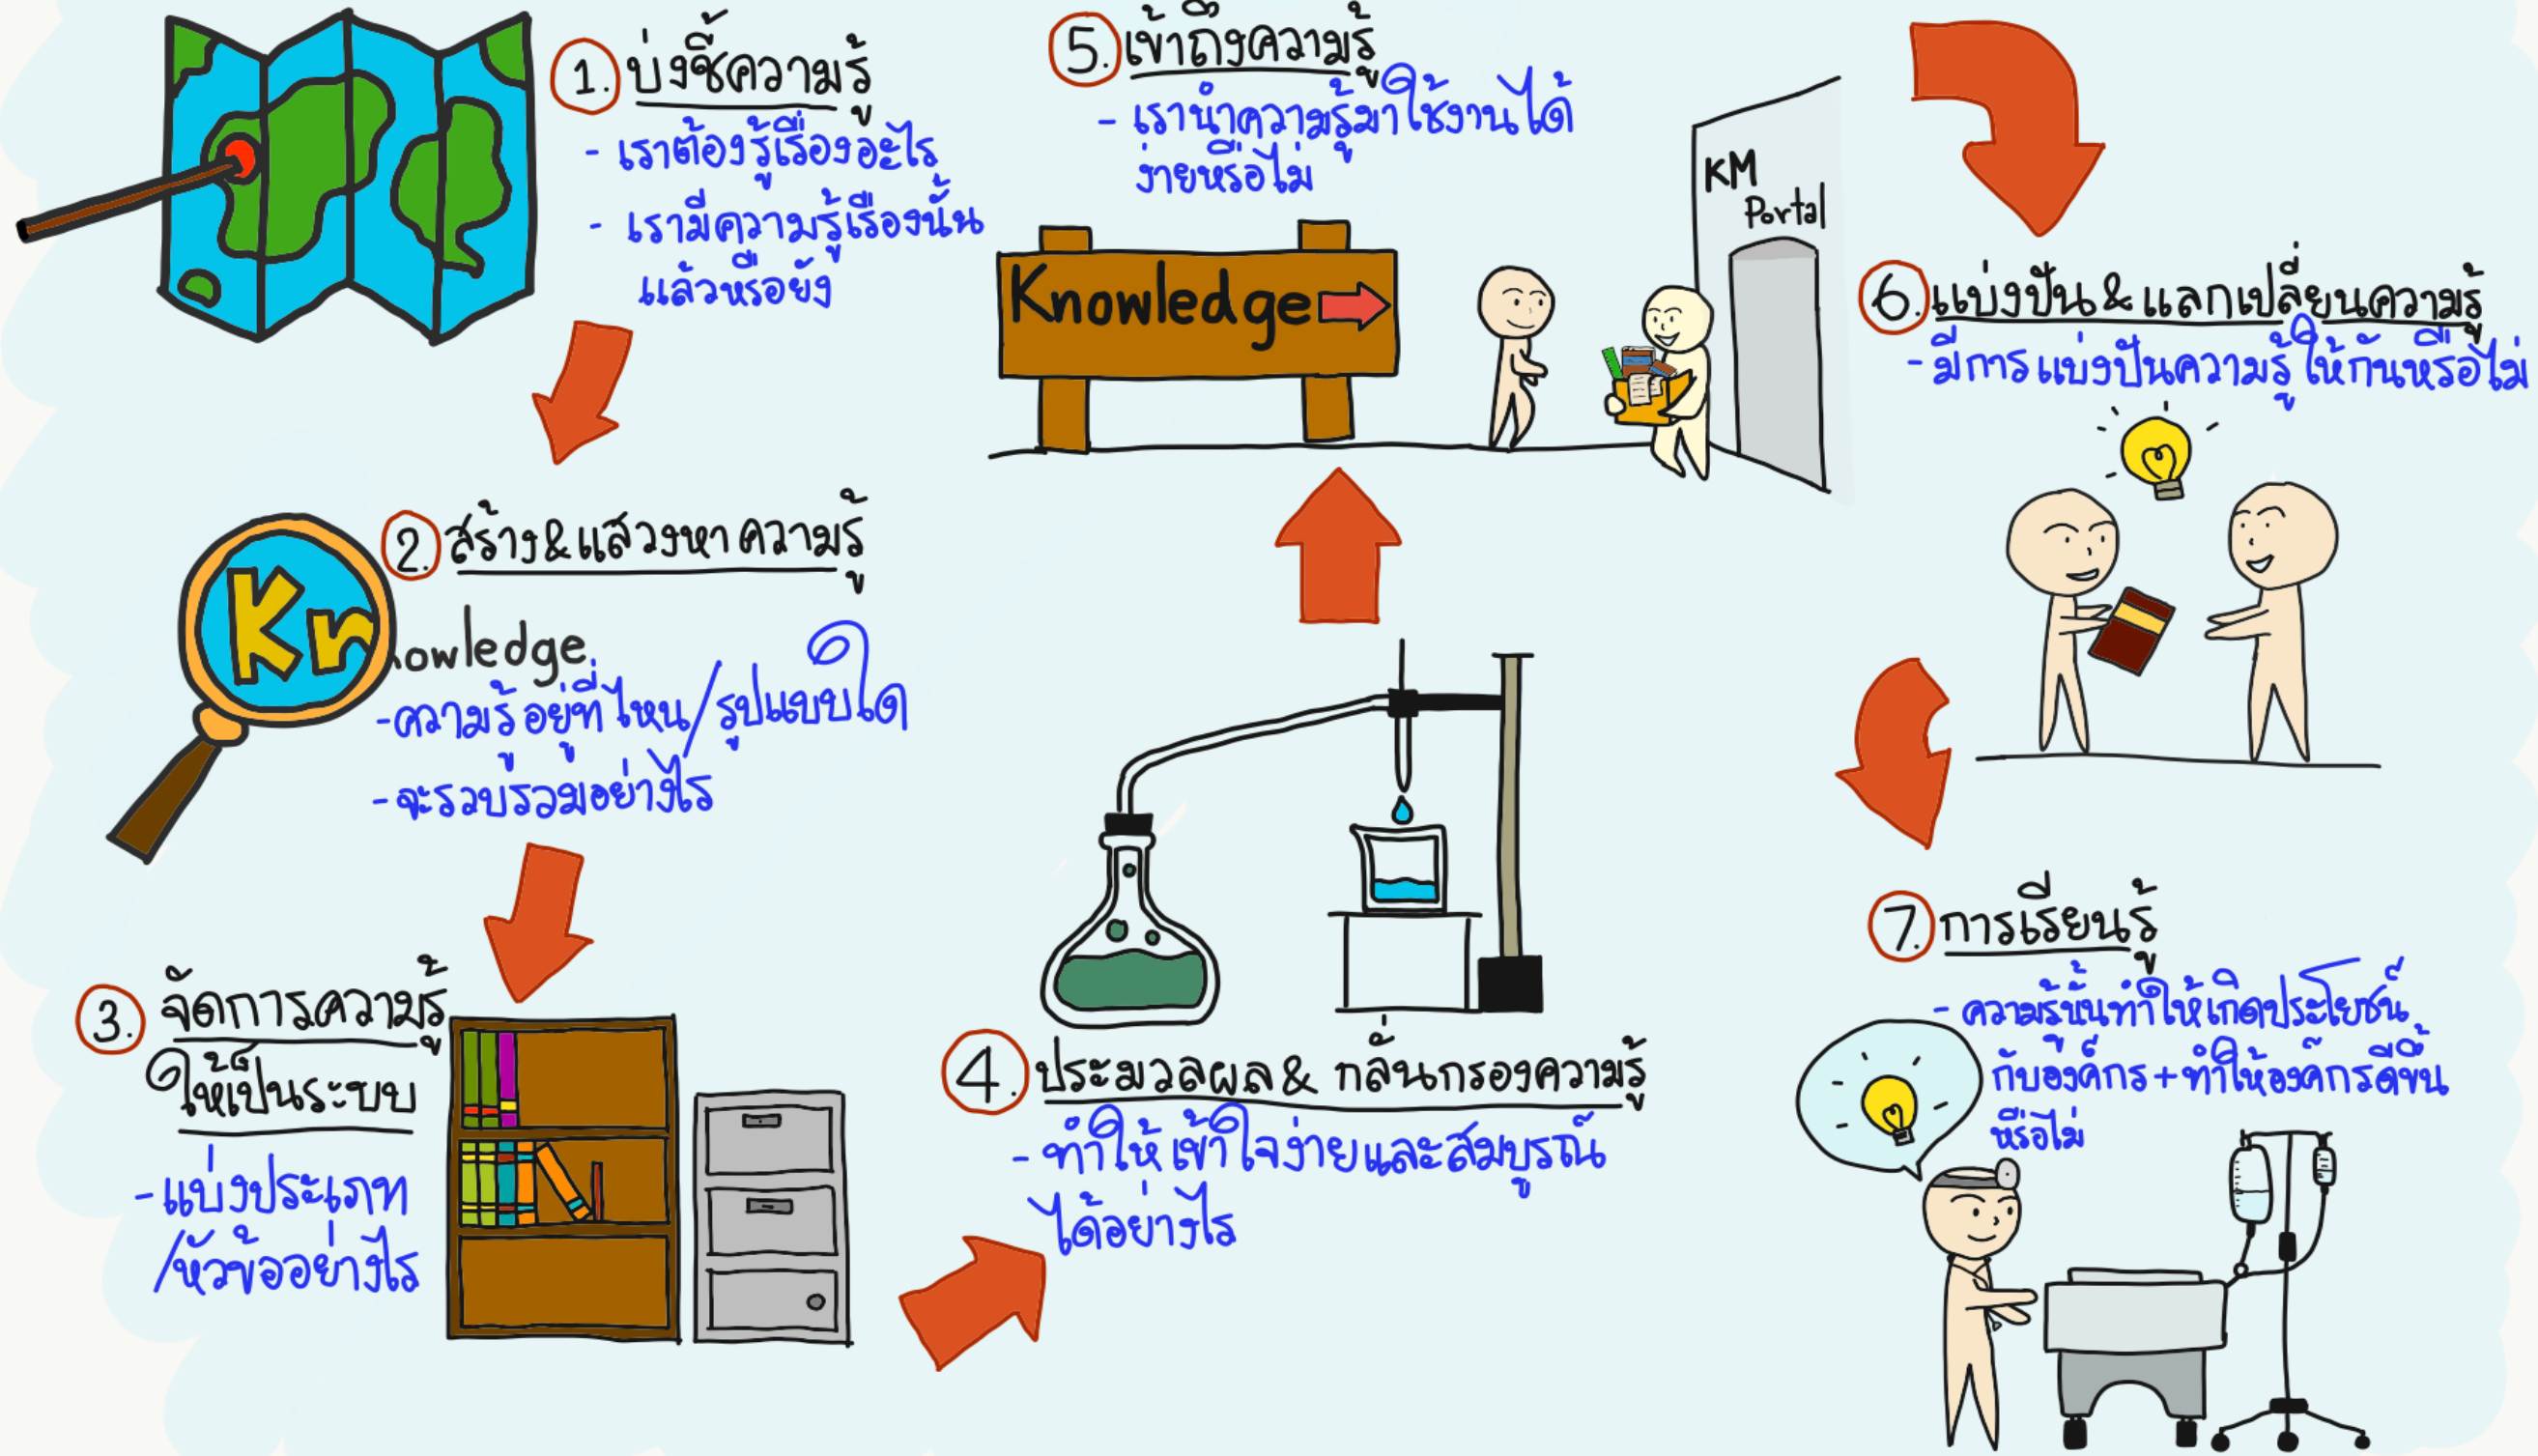 1. บ่งชี้ความรู้
- เราต้องรู้เรื่องอะไร
- เรามีความรู้เรื่องนั้น
แล้วหรือยัง
2. สร้าง & แสวงหาความรู้
Kn
nowledge
- ความรู้อยู่ที่ไหน/รูปแบบใด
- จะรวบรวมอย่างไร
3. จัดการความรู้
ให้เป็นระบบ
- แบ่งประเภท
/หัวข้ออย่างไร
4. ประมวลผล & กลั่นกรองความรู้
- ทำให้เข้าใจง่ายและสมบูรณ์
ได้อย่างไร
5. เข้าถึงความรู้
- เรานำความรู้มาใช้งานได้
ง่ายหรือไม่
Knowledge
KM
Portal
6. แบ่งปัน & แลกเปลี่ยนความรู้
- มีการแบ่งปันความรู้ให้กันหรือไม่
7. การเรียนรู้
- ความรู้นั้นทำให้เกิดประโยชน์
กับองค์กร + ทำให้องค์กรดีขึ้น
หรือไม่